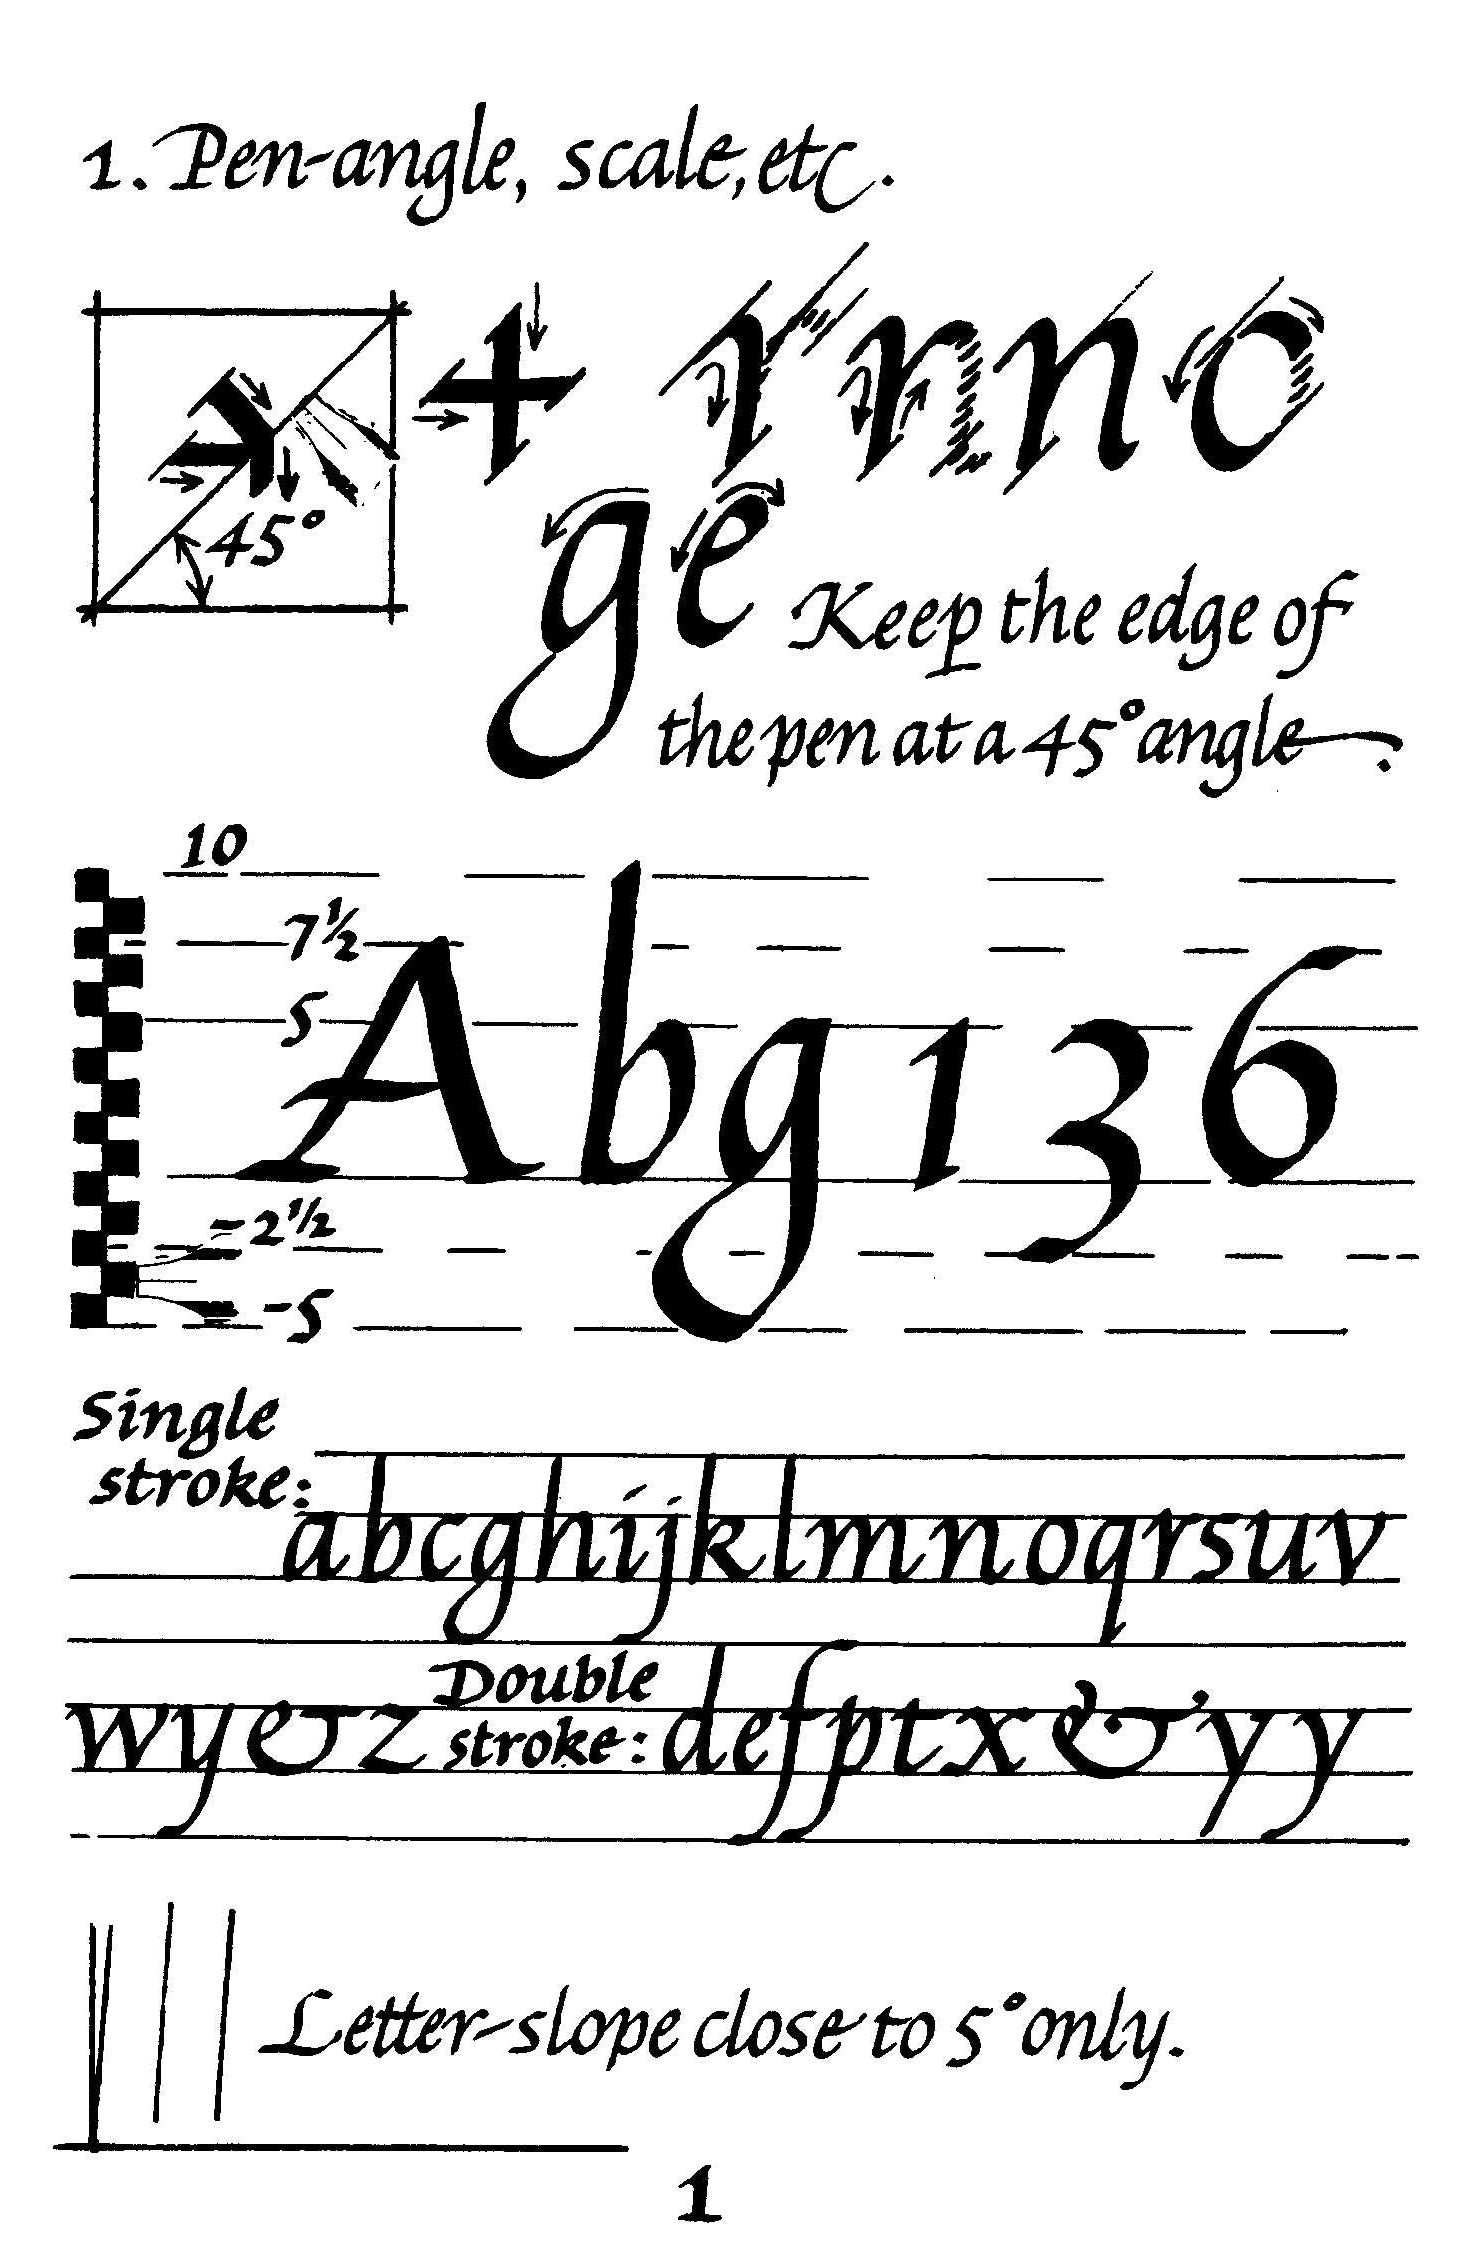 1. Pen-angle, scale, etc.
45°
r n n o
g e
Keep the edge of
the pen at a 45° angle.
10
7½
5
A b g 1 3 6
=2½
-5
Single
stroke:
a b c g h i j k l m n o q r s u v
w y e z
Double
stroke: d e f p t x & y y
Letter-slope close to 5° only.
1